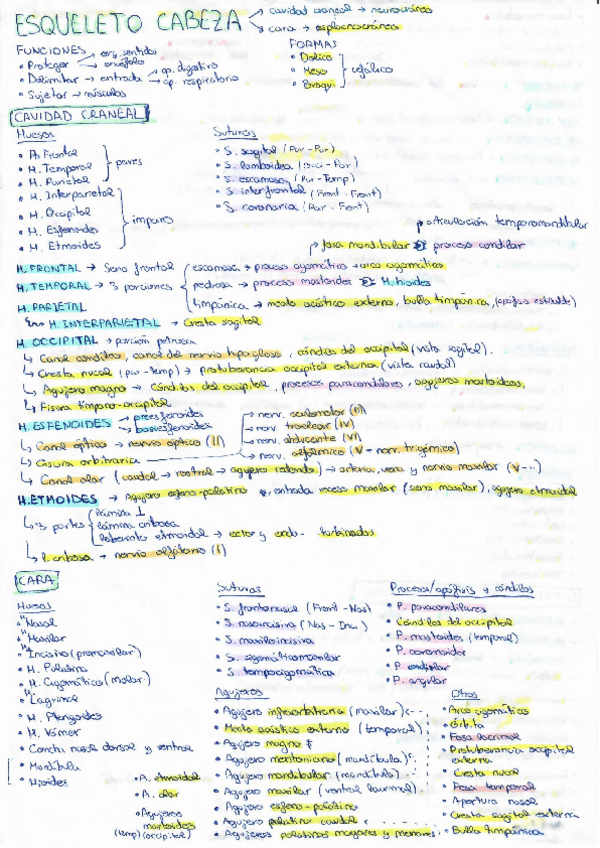 ESQUELETO CABEZA → cavidad craneal → neurocráneo
→ cara → esplacnocráneo
FUNCIONES
• Proteger → org. sentidos
→ encéfalo
• Delimitar → entrada → ap. digestivo
→ ap. respiratorio
• Sujetar → músculos
FORMAS
• Dolico
• Meso
• Braqui
cefálico
CAVIDAD CRANEAL
Huesos
• H. Frontal
• H. Temporal
• H. Parietal
pares
• H. Interparietal
• H. Occipital
• H. Esfenoides
• H. Etmoides
impares
Suturas
• S. sagital (Par - Par)
• S. lambdoidea (Occi - Par)
• S. escamosa (Par - Temp)
• S. interfrontal (Front - Front)
• S. coronaria (Par - Front)
→ Articulación temporomandibular
→ fosa mandibular proceso condilar
H. FRONTAL → Seno frontal
H. TEMPORAL → 3 porciones
escamosa → proceso cigomático → arco cigomático
petrosa → proceso mastoides H. hioides
timpánica → meato acústico externo, bulla timpánica,
H. PARIETAL
H. INTERPARIETAL → Cresta sagital
H. OCCIPITAL → porción petrosa
↳ Canal condíleo, canal del nervio hipogloso, cóndilos del occipital (vista sagital).
↳ Cresta nucal (par - temp) → protuberancia occipital externa (vista caudal)
↳ Agujero magno → Cóndilos del occipital, procesos paracondilares, agujeros mastoideos,
↳ Fisura timpano-occipital
H. ESFENOIDES → preesfenoides
→ basiesfenoides
↳ Canal óptico → nervio óptico (II)
↳ Cisura orbitaria
→ nerv. oculomotor (III)
→ nerv. troclear (IV)
→ nerv. abducente (VI)
→ nerv. oftálmico (V - nerv. trigémico)
↳ Canal alar (caudal → rostral → agujero redondo) → arteria, vena y nervio maxilar (V - ..)
H. ETMOIDES → Agujero esfeno-palatino, entrada receso maxilar (seno maxilar), agujero etmoidal
↳ 3 partes
lámina ⊥
lámina cribosa
laberinto etmoidal → ecto y endo - turbinados
↳ l. cribosa → nervio olfatorio (I)
CARA
Huesos
• H Nasal
• H Maxilar
• H Incisivo (premaxilar)
• H. Palatino
• H. Cigomático (molar)
• H Lagrimal
• H. Pterigoides
• H. Vómer
• Concha nasal dorsal y ventral
• Mandíbula
• Hioides
Suturas
• S. frontonasal (Front - Nas)
• S. nasoincisiva (Nas - Inc.)
• S. maxiloincisiva
• S. cigomáticomaxilar
• S. temporocigomática
Procesos/apófisis y cóndilos
• P. paracondilares
• Cóndilos del occipital
• P. mastoides (temporal)
• P. coronoides
• P. condilar
• P. angular
Agujeros
• Agujero infraorbitario (maxilar)
• Meato acústico externo (temporal)
• Agujero magno
• Agujero mentoniano (mandíbula)
• Agujero mandibular (mandíbula)
• Agujero maxilar (ventral lacrimal)
• Agujero esfeno-palatino
• Agujero palatino caudal
• Agujeros palatinos mayores y menores
• A. etmoidal
• A. alar
• Agujeros
mastoideos
(temp) (occipital)
Otros
• Arco cigomático
• Órbita
• Fosa lacrimal
• Protuberancia occipital
externa
• Cresta nucal
• Fosa temporal
• Apertura nasal
• Cresta sagital externa
• Bulla timpánica